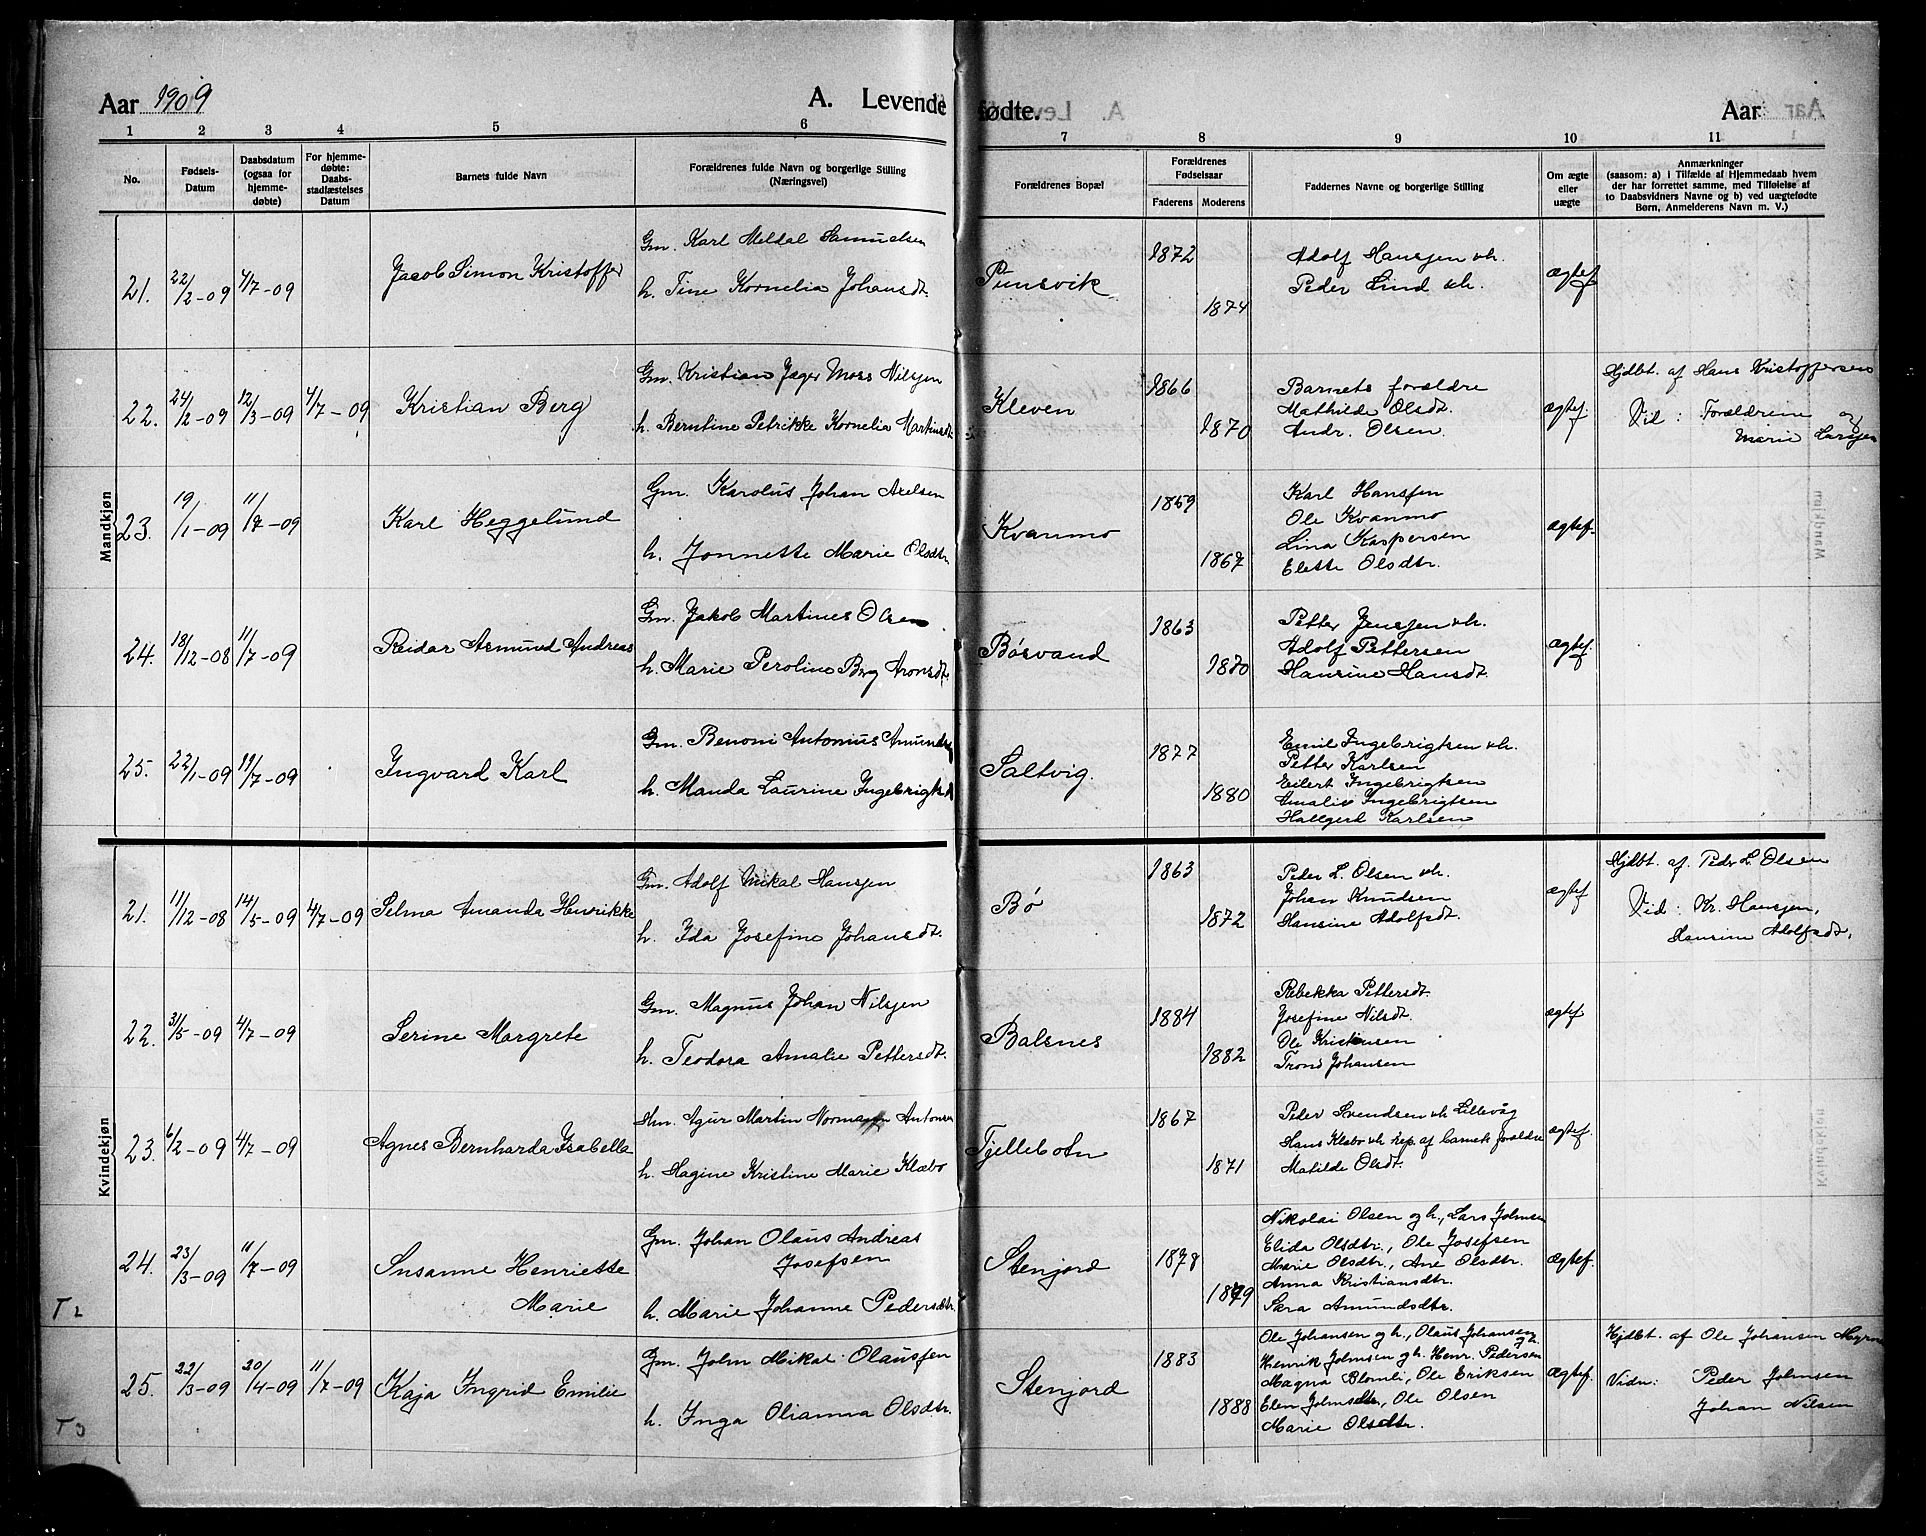 Aar 1909
A. Levende
fødte.
Aar
1 2 3 4 5 6 7 8 9 10 11
No.
Fødsels-
Datum
Daabsdatum
(ogsaa for
hjemme-
døbte)
For hjemme-
døbte:
Daabs-
stadfæstelses
Datum
Barnets fulde Navn
Forældrenes fulde Navn og borgerlige Stilling
(Næringsvei)
Forældrenes Bopæl
Forældrenes
Fødselsaar
Faderens Moderens
Faddernes Navne og borgerlige Stilling
Om ægte
eller
uægte
Anmærkninger
(saasom: a) i Tilfælde af Hjemmedaab hvem
der har forrettet samme, med Tilføielse af
to Daabsvidners Navne og b) ved uægtefødte
Børn, Anmelderens Navn m. V.)
Mandkjøn
21. 22/2-09 4/7-09 Jacob Simon Kristoffer
Gm. Karl Meldal Samuelsen
h. Tine Kornelia Johansdt.
1872
1874
Adolf Hansjen &h.
Peder Lind &h.
ægtef
22. 24/2-09 12/3-09 4/7-09 Kristian Berg
Gm. Kristian Jæger Moss Nilsjen
h. Berntine Petrikke Kornelia Martinsdt.
Kleven
1866
1870
Barnets forældre
Mathilde Olsdt.
Andr. Olsen.
ægtef.
Hjdbt. af Hans Kristoffersen
Vid: Forældrene og
Marie Larsjen
23. 19/1-09 11/7-09 Karl Heggelund
Gm. Karolus Johan Axelsen
h. Jonnette Marie Olsdtr.
Kvanmo
1859
1867
Karl Hansjen
Ole Kvanmo
Lina Kaspersen
Elette Olsdtr.
ægtef.
24. 18/12-08 11/7-09 Reidar Asmund Andreas
Gm. Jakob Martines Olsen
h. Marie Peroline Berg Aronsdt.
Bøsvand
1863
1870
Petter Jensjen &h.
Adolf Pettersen
Hansine Hansdt.
ægtef.
25. 22/1-09 11/7-09 Ingvard Karl
Gm. Benoni Antonius Amundsen
h. Manda Laurine Ingebrigtsd
Saltvig.
1877
1880
Emil Ingebrigtsen &h.
Petter Karlsen
Eilert Ingebrigtsen
Amalie Ingebrigtsen
Hallgerd Karlsen
Kvindekjøn
21. 11/12-08 14/5-09 4/7-09 Selma Amanda Henrikke
Gm. Adolf Mikal Hansjen
h. Ida Josefine Johansdt.
Bø
1863
1872
Peder L. Olsen &h.
Johan Knudsen
Hansine Adolfsdt.
ægtef
Hjdbt. af. Peder L. Olsen
Vid: Kr. Hansjen,
Hansine Adolfsdt.
22. 31/5-09 4/7-09 Serine Margrete
Gm. Magnus Johan Nilsjen
h. Teodora Amalie Pettersdt.
Balsnes
1884
1882
Rebekka Pettersdt.
Josefine Nilsdt.
Ole Kristensen
Trond Johansen
ægtef
23. 6/2-09 4/7-09 Agnes Bernharda Ysabella
Agur Martin Normann Antonsen
h. Hagine Kristine Marie Klæbo
Fjellebotn
1867
1871
Peder Svendsen &h Lillevåg
Hans Klæbo &h Rep. af barnets forældre
Matilde Olsdt.
ægtef.
24. 23/3-09 11/7-09 Susanne Henriette
Marie
Gm. Johan Olaus Andreas
Josefsen
h. Marie Johanne Pedersdtr.
Stenjord
1878
1879
Nikolai Olsen og h., Lars Johnsen
Elida Olsdtr., Ole Josefsen
Marie Olsdtr., Ane Olsdtr.
Anna Kristiansdtr.
Sara Amundsdtr.
ægtef.
T 2
25. 22/3-09 20/4-09 11/7-09 Kaja Ingrid Emilie
Gm. John Mikal Olausjen
h. Inga Olianna Olsdtr.
Stenjord
1883
1888
Ole Johansen og h., Olaus Johansen og h.
Henrik Johnsen og h. Henr. Pedersen
Magna Blomli, Ole Eriksen
Elen Johnsdtr, Ole Olsen
Marie Olsdtr.
ægtef.
Hjdbt. af Ole Johansen Myrn
Vidn: Peder Johnsen
Johan Nilsen
T 3